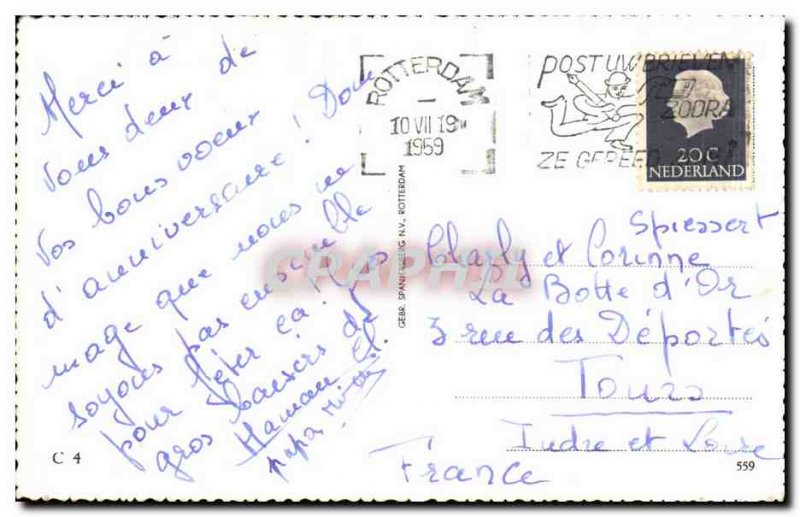 Merci à
vous deux de
vos bons voeux
d'anniversaire ! Dom
mage que nous ne
soyons pas ensemble
pour fêter ça ! Vos
gros baisers de
Maman et
papa
ROTTERDAM
10 VII 19
1959
POST UW BRIEVEN
ZODRA
ZE GEREED
20 C
NEDERLAND
GEBR. SPANJERSBERG N.V., ROTTERDAM
Spiessert
Charly et Corinne
La Botte d'Or
3 rue des Déportés
Tours
Indre et Loire
France
C 4
559